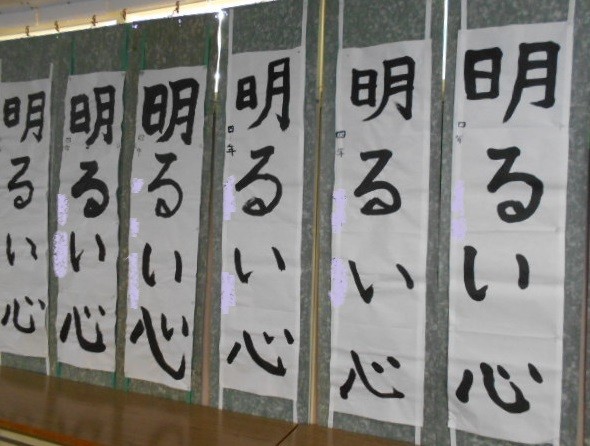 明るい心
四年
明るい心
四年
明るい心
四年
明るい心
明るい心
明るい心